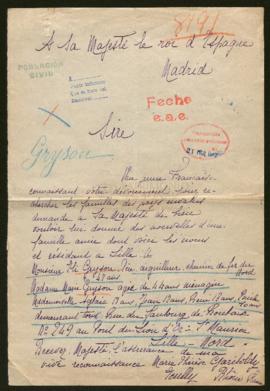 8191
A Sa Majesté le roi d'Espagne
Madrid
POBLACIÓN
CIVIL
Fecho
e.a.e.
Sire
Gryson
Un jeune Français
connaissant votre dévouement pour re-
chercher les familles des pays envahis
demande à Sa Majesté de bien
vouloir lui donner des nouvelles d'une
famille amie dont voici les noms
et résidant à Lille
Monsieur Gryson aiguilleur chemin de fer du
Nord
Madame Marie Gryson agée de 44 ans ménagère
Mademoiselle 18 ans, Jean 13 ans,
demeurant tous Rue du Faubourg de Roubaix
No 249 au Pont du Lion d'Or St Maurice
Lille Nord
Recevez, Majesté, l'assurance de ma
vive reconnaissance Marie